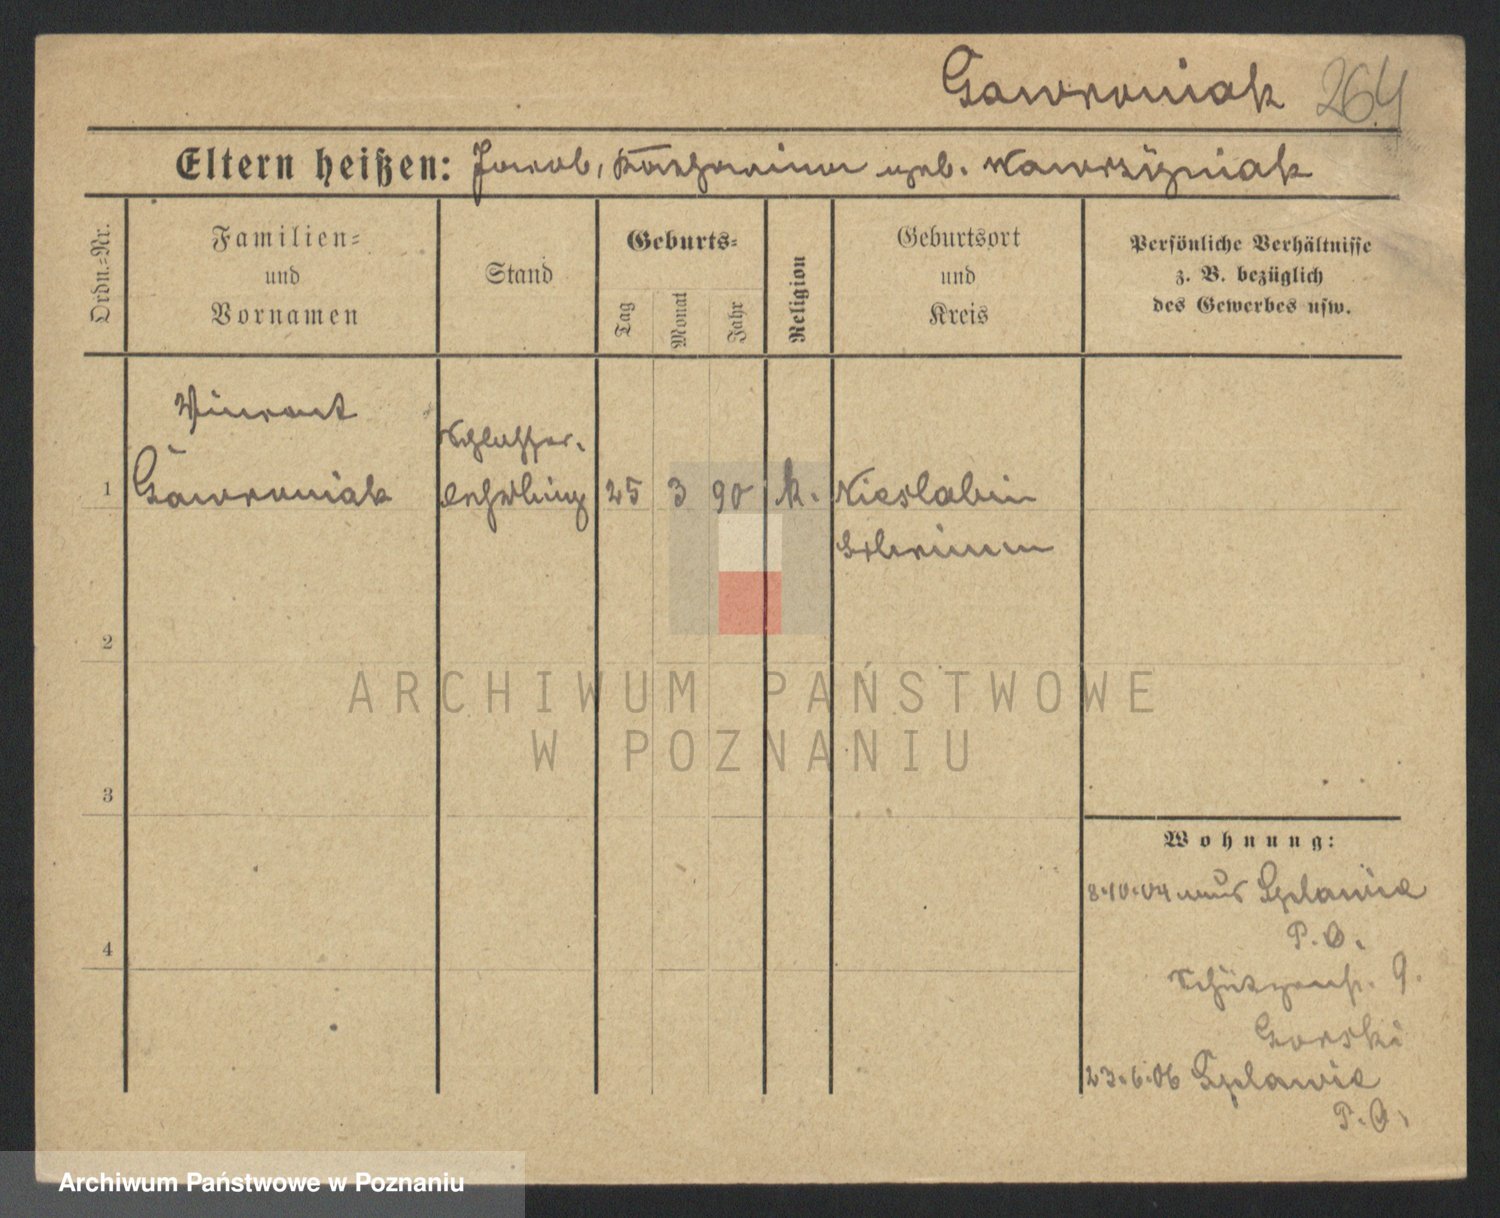 Gawroniak 264
Eltern heißen: Jacob, Katharina geb. Wawrzyniak
Ordn.-Nr.
Familien-
und
Vornamen
Stand
Geburts-
Tag
Monat
Jahr
Religion
Geburtsort
und
Kreis
Persönliche Verhältnisse
z. B. bezüglich
des Gewerbes usw.
Vincent
Schlosser-
1 Gawroniak lehrling 25 3 90 k. Nieslabin
Schrimm
2
ARCHIWUM PAŃSTWOWE
W POZNANIU
3
Wohnung:
8.10.04 aus Splawie
P.O.
4
Schützenstr. 9.
Gorski
23.6.06 Splawie
P.O.
Archiwum Państwowe w Poznaniu